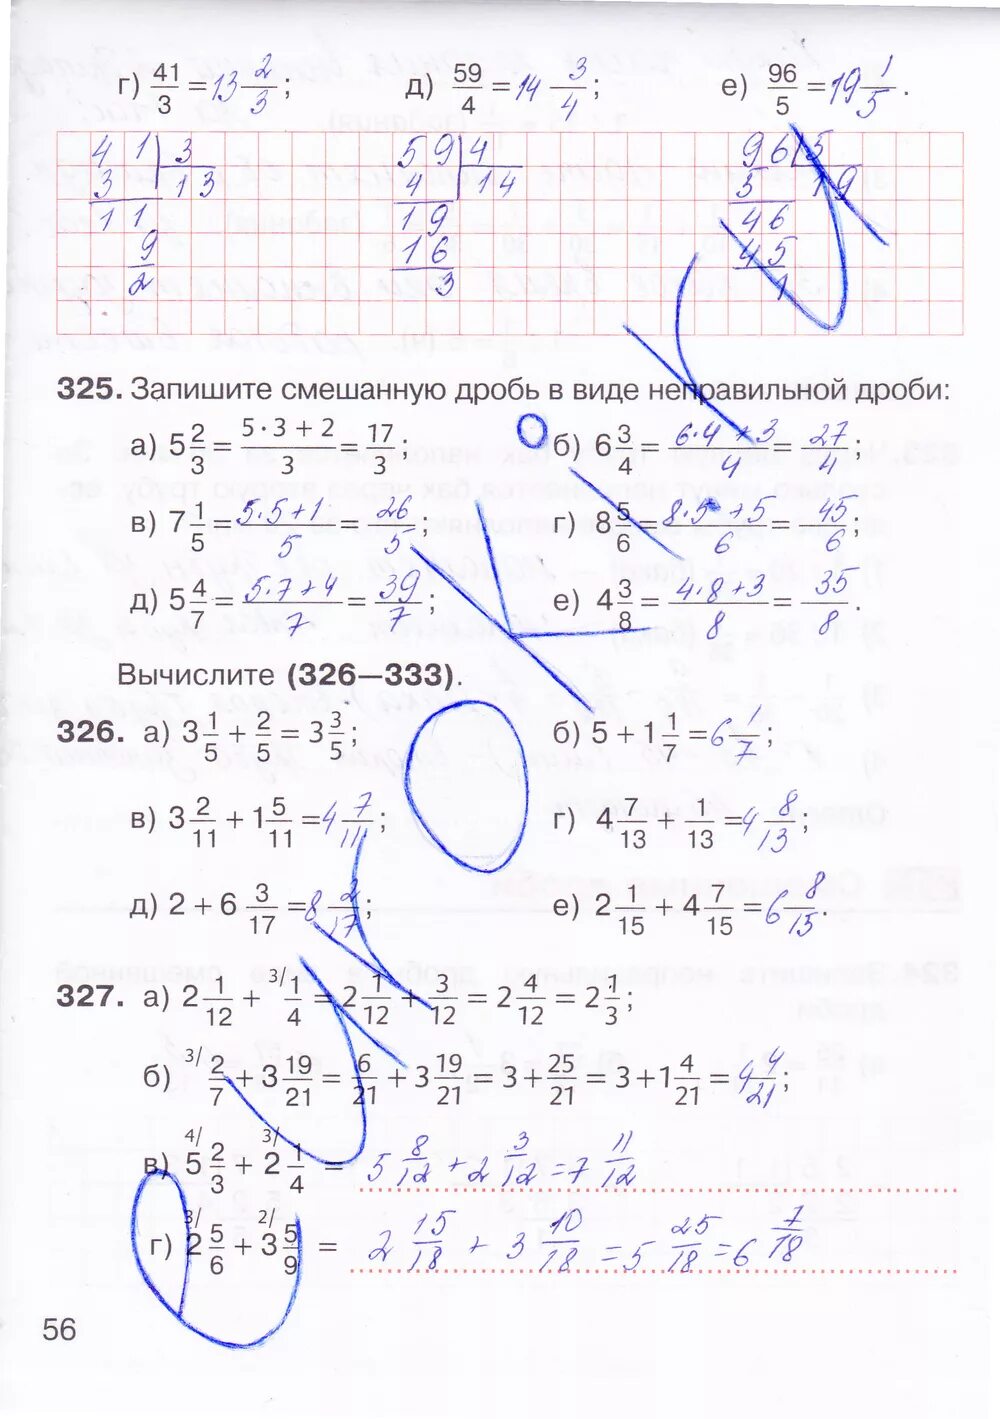 г) 41/3 = 13 2/3; д) 59/4 = 14 3/4; е) 96/5 = 19 1/5.
41 | 3 59 | 4 96 | 5
3 13 4 14 5 19
11 19 46
9 16 45
2 3 1
325. Запишите смешанную дробь в виде неправильной дроби:
а) 5 2/3 = (5·3+2)/3 = 17/3; б) 6 3/4 = (6·4+3)/4 = 27/4;
в) 7 1/5 = (5·5+1)/5 = 26/5; г) 8 5/6 = (8·5+5)/6 = 45/6;
д) 5 4/7 = (5·7+4)/7 = 39/7; е) 4 3/8 = (4·8+3)/8 = 35/8.
Вычислите (326—333).
326. а) 3 1/5 + 2/5 = 3 3/5; б) 5 + 1 1/7 = 6 1/7;
в) 3 2/11 + 1 5/11 = 4 7/11; г) 4 7/13 + 1/13 = 4 8/13;
д) 2 + 6 3/17 = 8 2/17; е) 2 1/15 + 4 7/15 = 6 8/15.
327. а) 2 1/12 + 3/ 1/4 = 2 1/12 + 3/12 = 2 4/12 = 2 1/3;
б) 3/ 2/7 + 3 19/21 = 6/21 + 3 19/21 = 3 + 25/21 = 3 + 1 4/21 = 4 4/21;
в) 4/ 5 2/3 + 3/ 2 1/4 = 5 8/12 + 2 3/12 = 7 11/12
г) 3/ 2 5/6 + 2/ 3 5/9 = 2 15/18 + 3 10/18 = 5 25/18 = 6 7/18
56